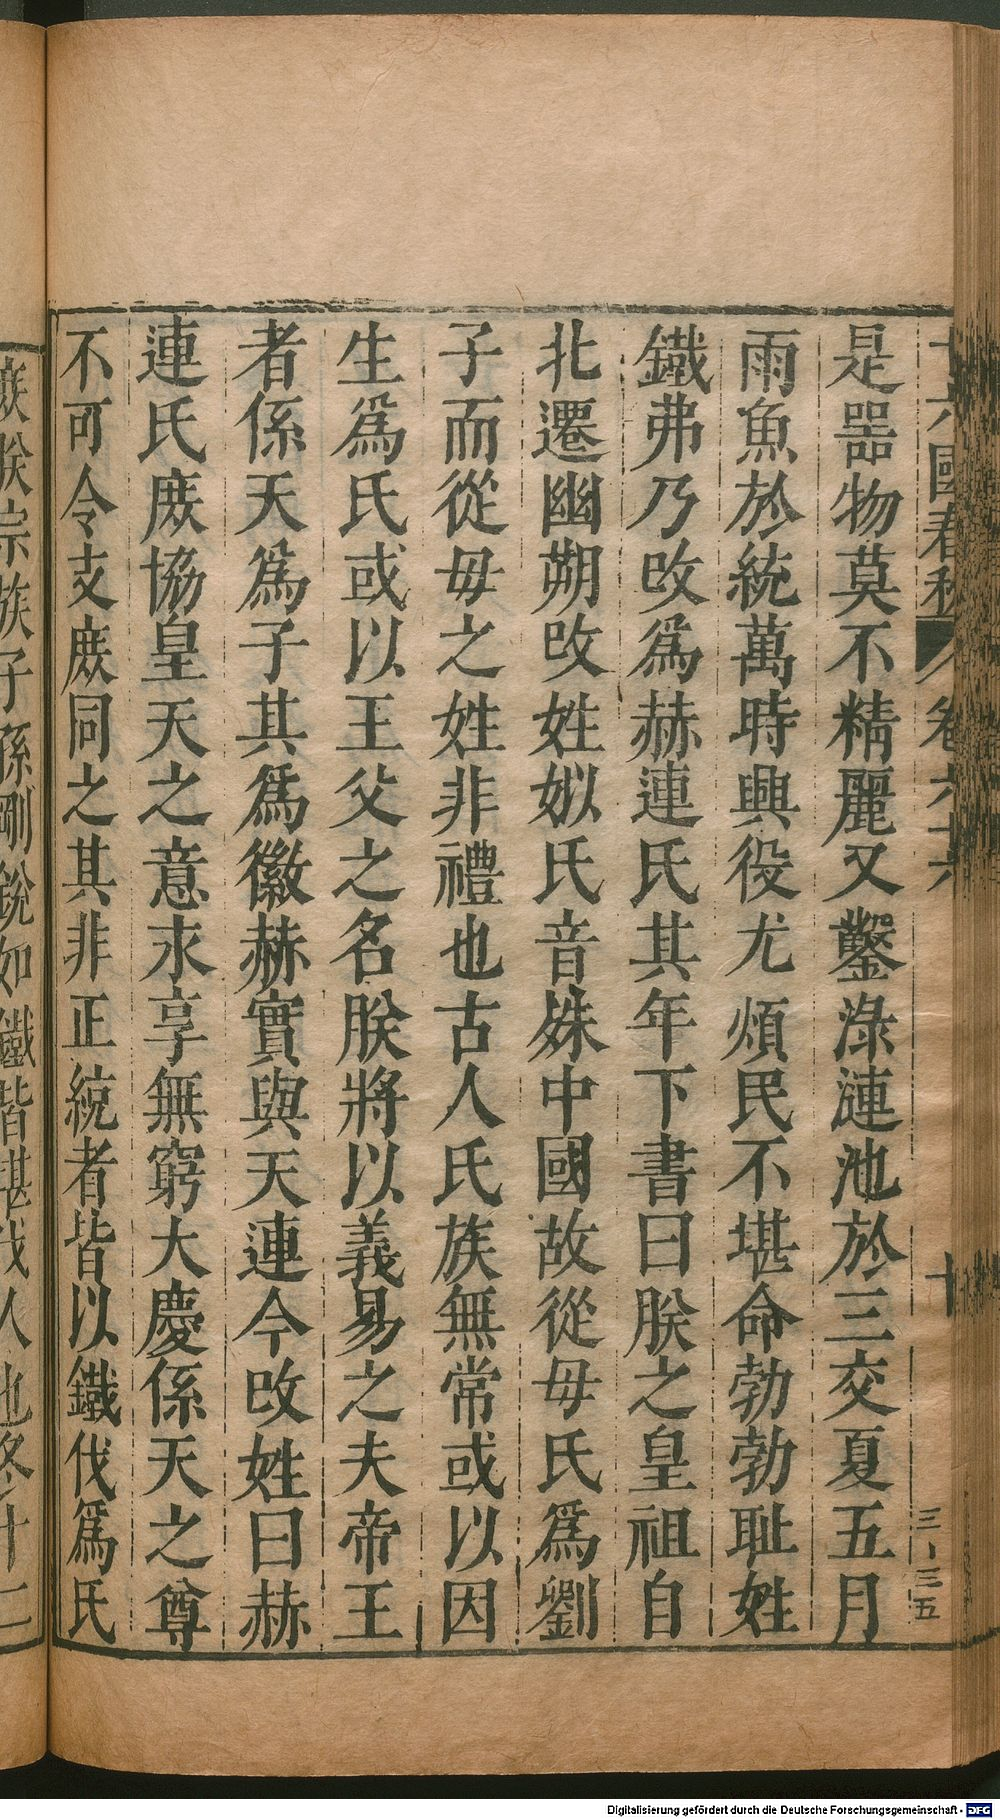 十六國春秋 卷六十六 十
三、三五
是器物莫不精麗又鑿淥漣池於三交夏五月
雨魚於統萬時興役尤煩民不堪命勃勃耻姓
鐵弗乃改爲赫連氏其年下書曰朕之皇祖自
北遷幽朔改姓姒氏音殊中國故從母氏爲劉
子而從母之姓非禮也古人氏族無常或以因
生爲氏或以王父之名朕將以義易之夫帝王
者係天爲子其爲徽赫實與天連今改姓曰赫
連氏庶協皇天之意永享無窮大慶係天之尊
不可令支庶同之其非正統者皆以鐵伐爲氏
庶朕宗族子孫剛銳如鐵皆堪伐人也冬十二
Digitalisierung gefördert durch die Deutsche Forschungsgemeinschaft - DFG